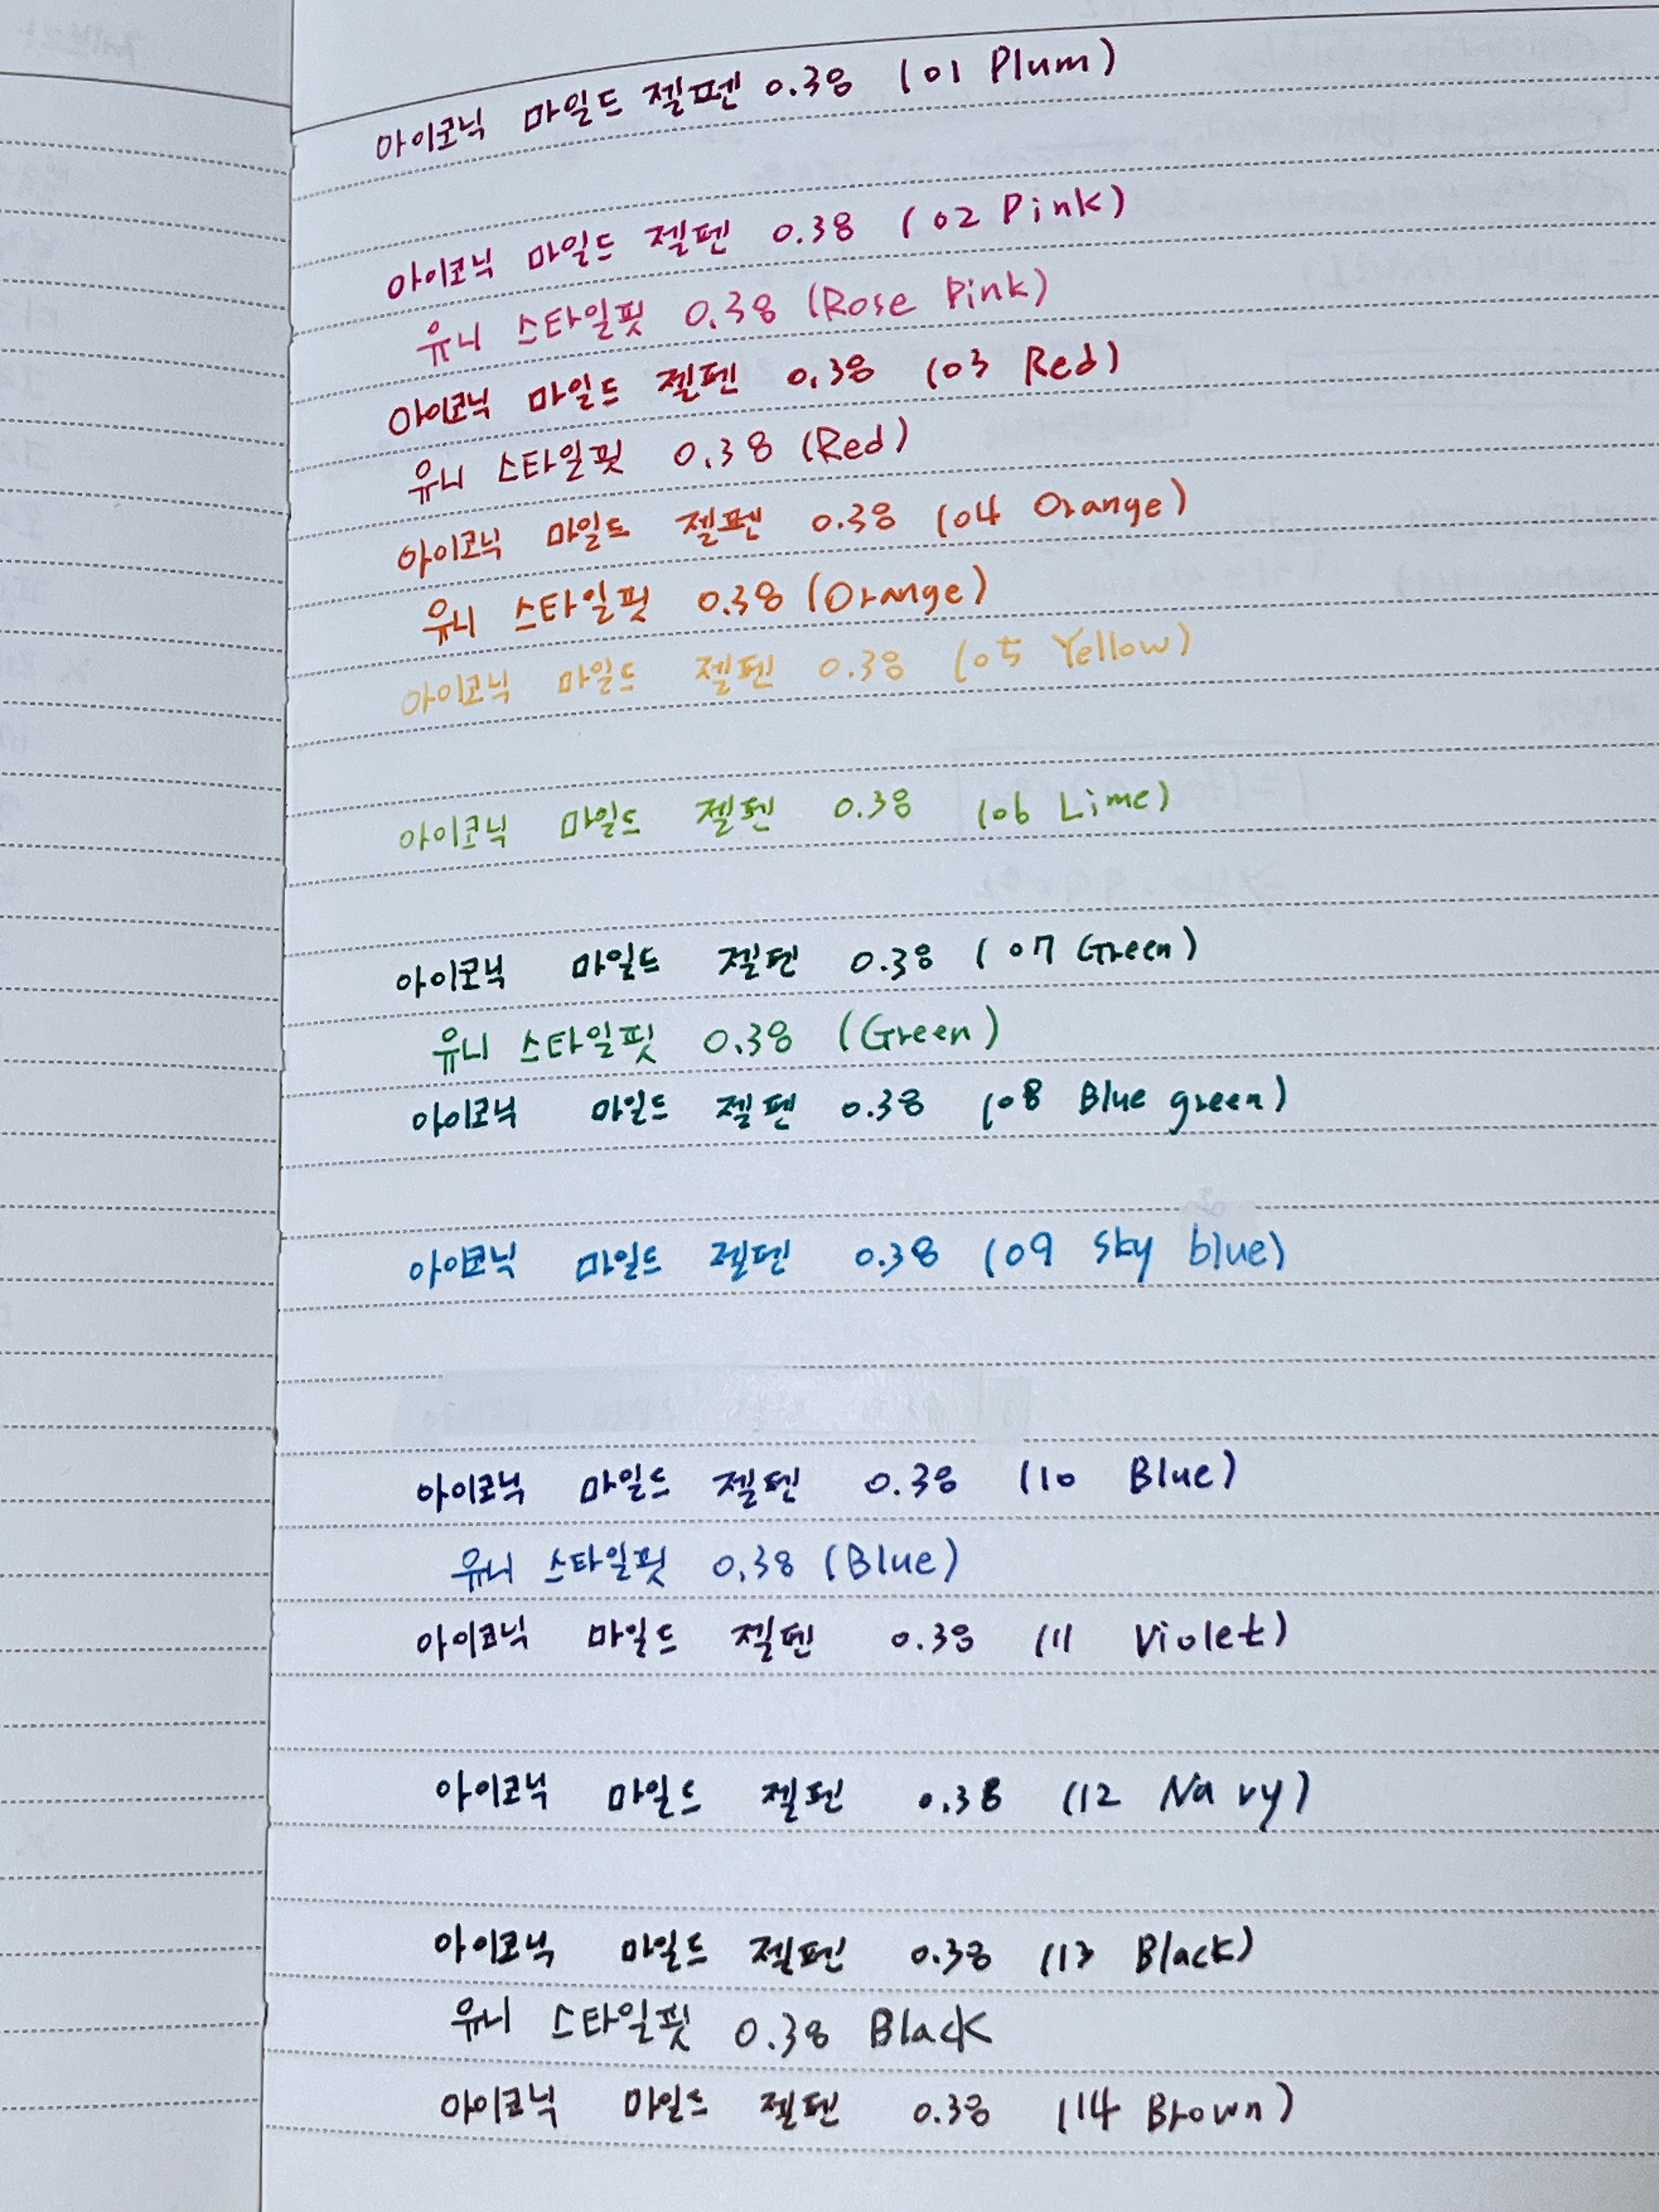 아이코닉 마일드 젤펜 0.38 (01 Plum)
아이코닉 마일드 젤펜 0.38 (02 Pink)
유니 스타일핏 0.38 (Rose Pink)
아이코닉 마일드 젤펜 0.38 (03 Red)
유니 스타일핏 0.38 (Red)
아이코닉 마일드 젤펜 0.38 (04 Orange)
유니 스타일핏 0.38 (Orange)
아이코닉 마일드 젤펜 0.38 (05 Yellow)
아이코닉 마일드 젤펜 0.38 (06 Lime)
아이코닉 마일드 젤펜 0.38 (07 Green)
유니 스타일핏 0.38 (Green)
아이코닉 마일드 젤펜 0.38 (08 Blue green)
아이코닉 마일드 젤펜 0.38 (09 sky blue)
아이코닉 마일드 젤펜 0.38 (10 Blue)
유니 스타일핏 0.38 (Blue)
아이코닉 마일드 젤펜 0.38 (11 Violet)
아이코닉 마일드 젤펜 0.38 (12 Navy)
아이코닉 마일드 젤펜 0.38 (13 Black)
유니 스타일핏 0.38 Black
아이코닉 마일드 젤펜 0.38 (14 Brown)